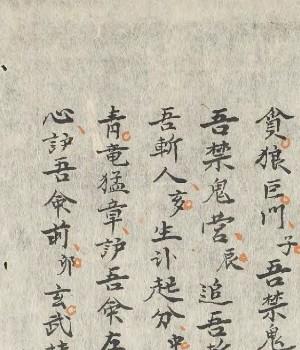 貪狼巨門子吾禁鬼
吾禁鬼营辰追吾
吾斬人亥生计起分
青竜猛章護吾命左
心護吾命前卯玄武